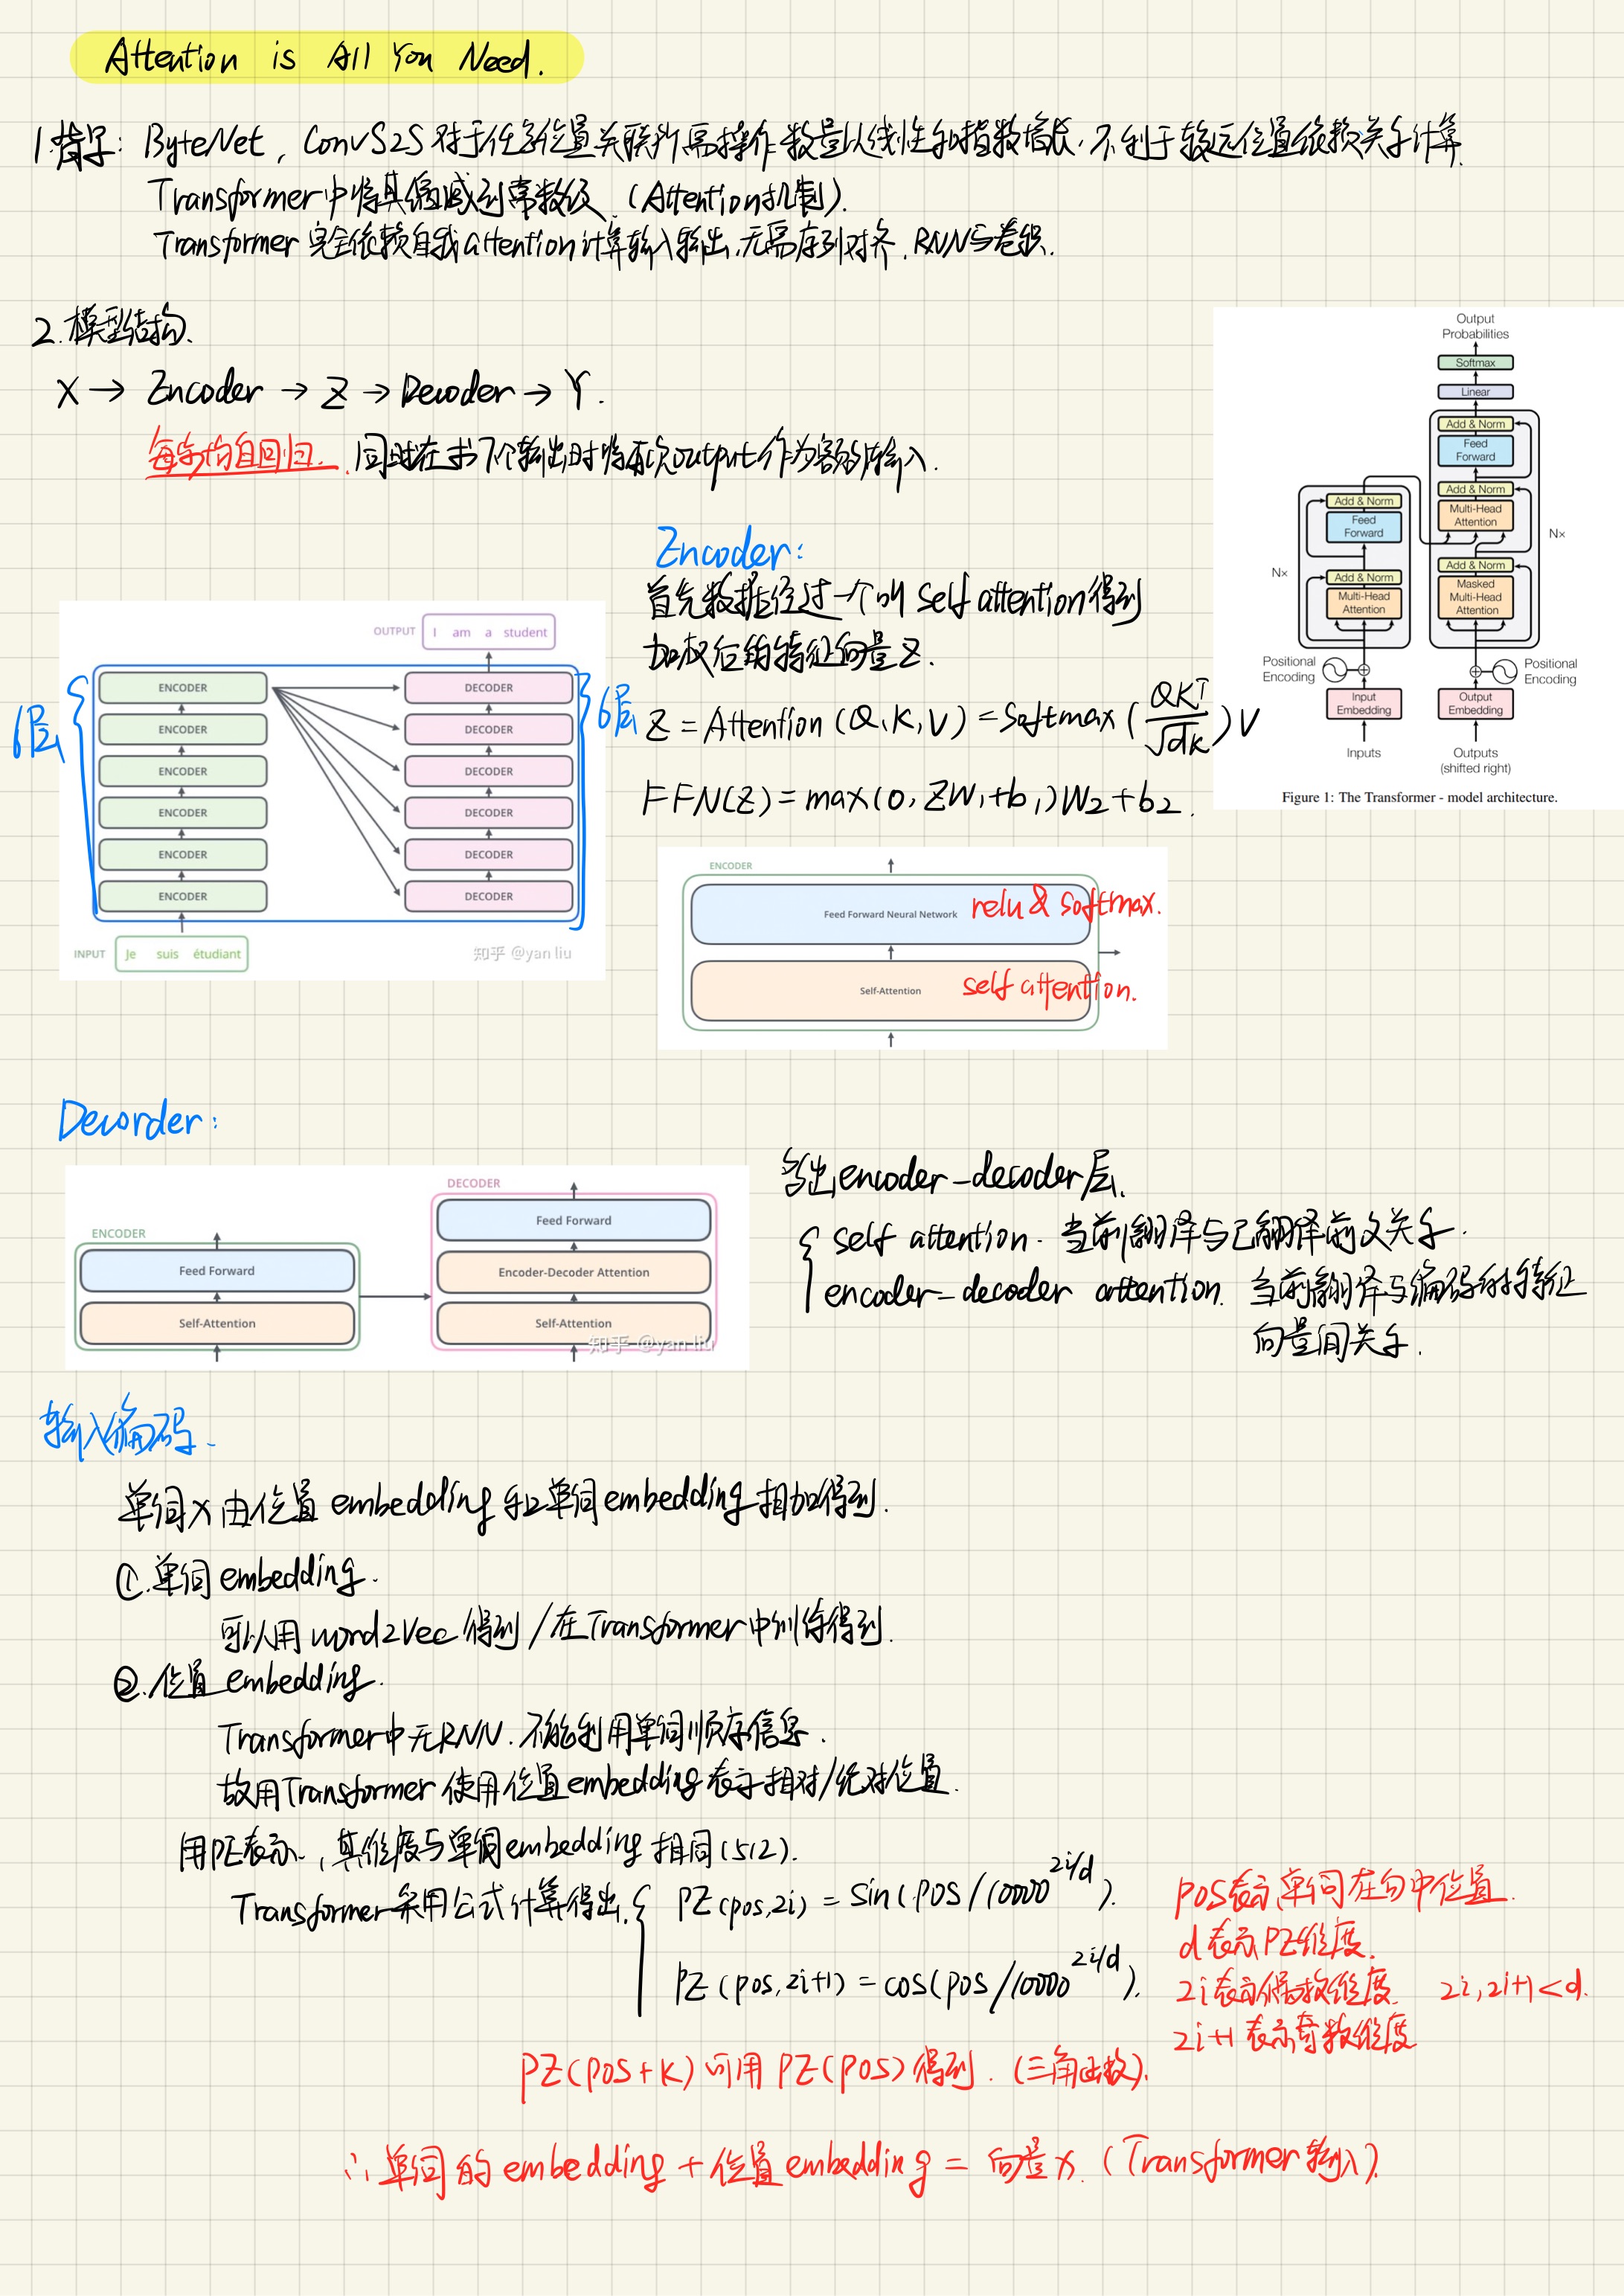 Attention is All You Need.
1.背景: ByteNet, ConvS2S 对于任意位置关联所需操作数量以线性和指数增长,不利于较远位置依赖关系计算.
Transformer中将其缩减到常数级.(Attention机制).
Transformer 完全依赖自我attention计算输入输出,无需序列对齐.RNN与卷积.
2.模型结构.
X → Encoder → Z → Decoder → Y.
每步均自回归. 同时在 下个输出时将本次output作为额外输入.
Output
Probabilities
Softmax
Linear
Add & Norm
Feed
Forward
Add & Norm
Multi-Head
Attention
Add & Norm
Masked
Multi-Head
Attention
Nx
Add & Norm
Feed
Forward
Add & Norm
Multi-Head
Attention
Nx
Positional
Encoding
Positional
Encoding
Input
Embedding
Output
Embedding
Inputs
Outputs
(shifted right)
Figure 1: The Transformer - model architecture.
OUTPUT I am a student
ENCODER DECODER
ENCODER DECODER
ENCODER DECODER
ENCODER DECODER
ENCODER DECODER
ENCODER DECODER
6层
6层
INPUT Je suis étudiant
知乎 @yan liu
Encoder:
首先数据经过一个叫 self attention得到
加权后的特征向量Z.
Z = Attention (Q,K,V) = Softmax (QKᵀ/√dk) V
FFN(Z) = max(0, ZW₁+b₁)W₂+b₂.
ENCODER
Feed Forward Neural Network relu & softmax.
Self-Attention self attention.
Decorder:
ENCODER
Feed Forward
Self-Attention
DECODER
Feed Forward
Encoder-Decoder Attention
Self-Attention
知乎 @yan liu
多出encoder-decoder层.
{ self attention. 当前翻译与已翻译前文关系.
encoder-decoder attention. 当前翻译与编码的特征
向量间关系.
输入编码.
单词x由位置 embedding 和单词embedding相加得到.
①.单词embedding.
可以用word2Vec得到/在Transformer中训练得到.
②.位置 embedding.
Transformer中无RNN.不能利用单词顺序信息.
故用Transformer 使用位置embedding表示相对/绝对位置.
用PE表示.,其维度与单词embedding 相同(512).
Transformer采用公式计算得出. { PE(pos,2i) = sin(pos/10000^2i/d).
PE(pos,2i+1) = cos(pos/10000^2i/d).
pos表示单词在句中位置.
d表示PE维度.
2i表示偶数维度. 2i,2i+1<d.
2i+1表示奇数维度
PE(pos+k)可用PE(pos)得到.(三角函数).
∴单词的embedding + 位置embedding = 向量x.(Transformer输入).